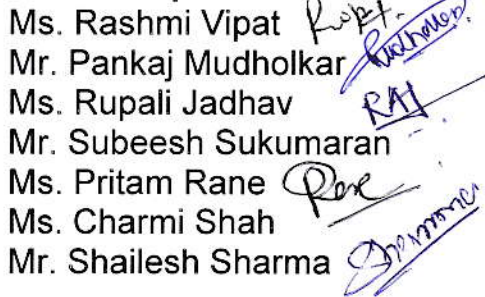 Ms. Rashmi Vipat
Mr. Pankaj Mudholkar
Ms. Rupali Jadhav RAJ
Mr. Subeesh Sukumaran
Ms. Pritam Rane Rane
Ms. Charmi Shah
Mr. Shailesh Sharma